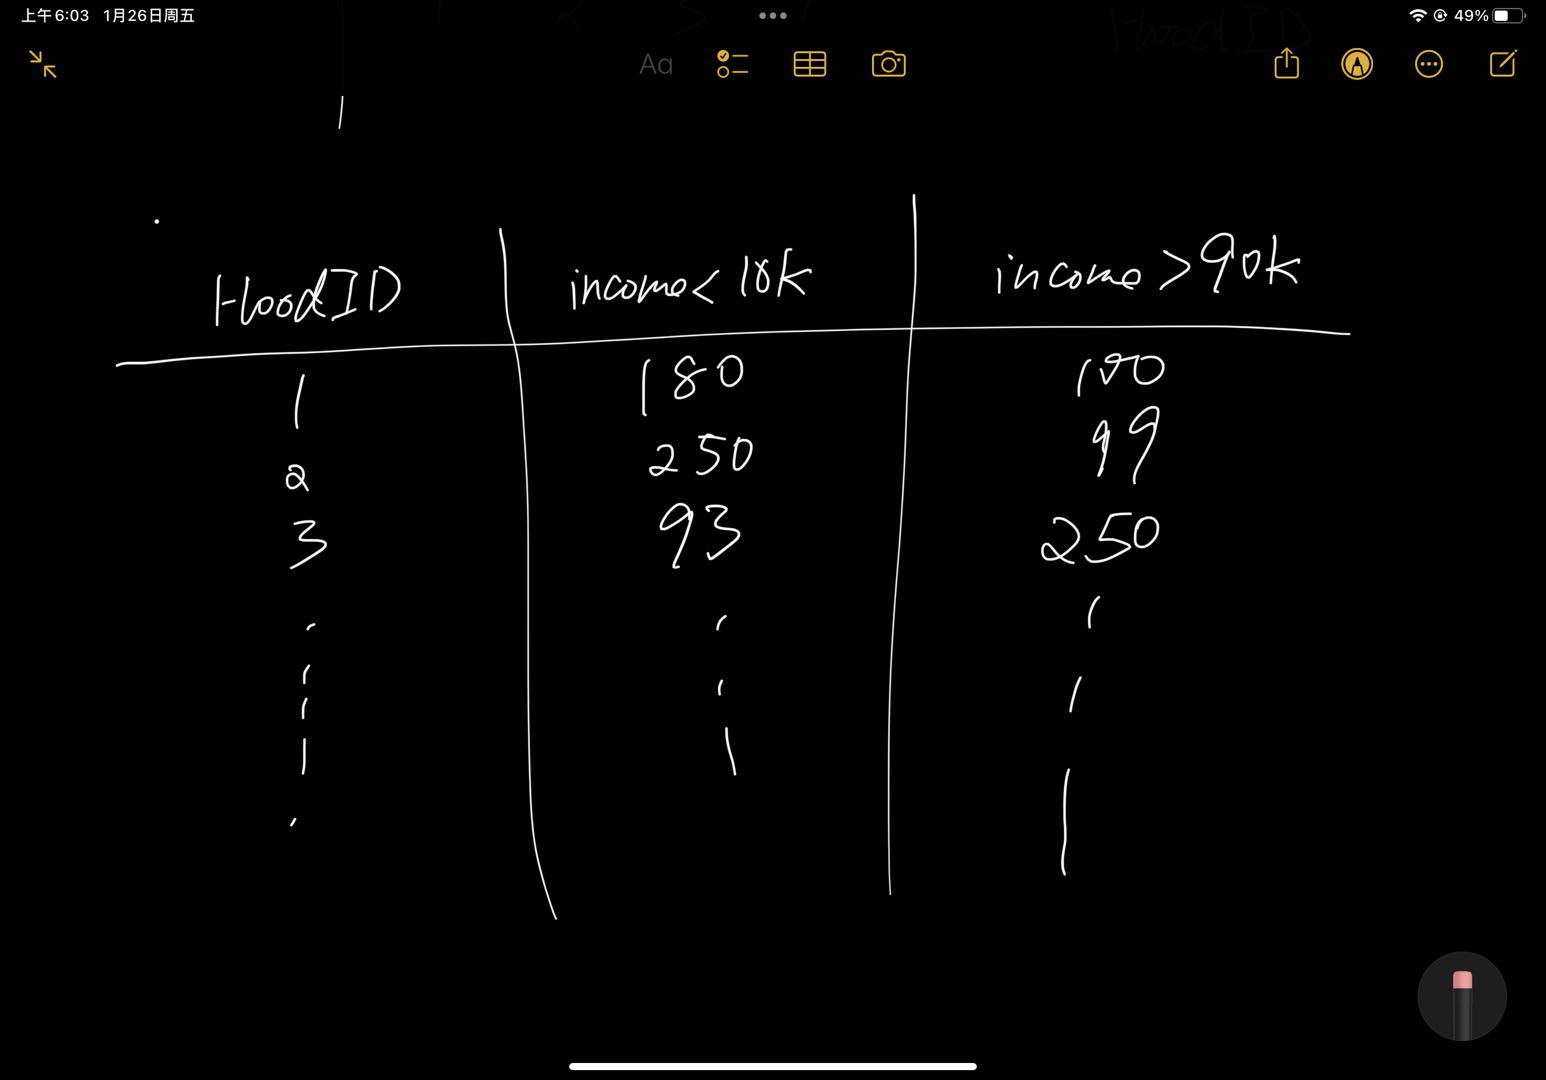 上午6:03 1月26日周五
49%
Aa
HoodID income<10k income>90k
1 180 100
2 250 99
3 93 250